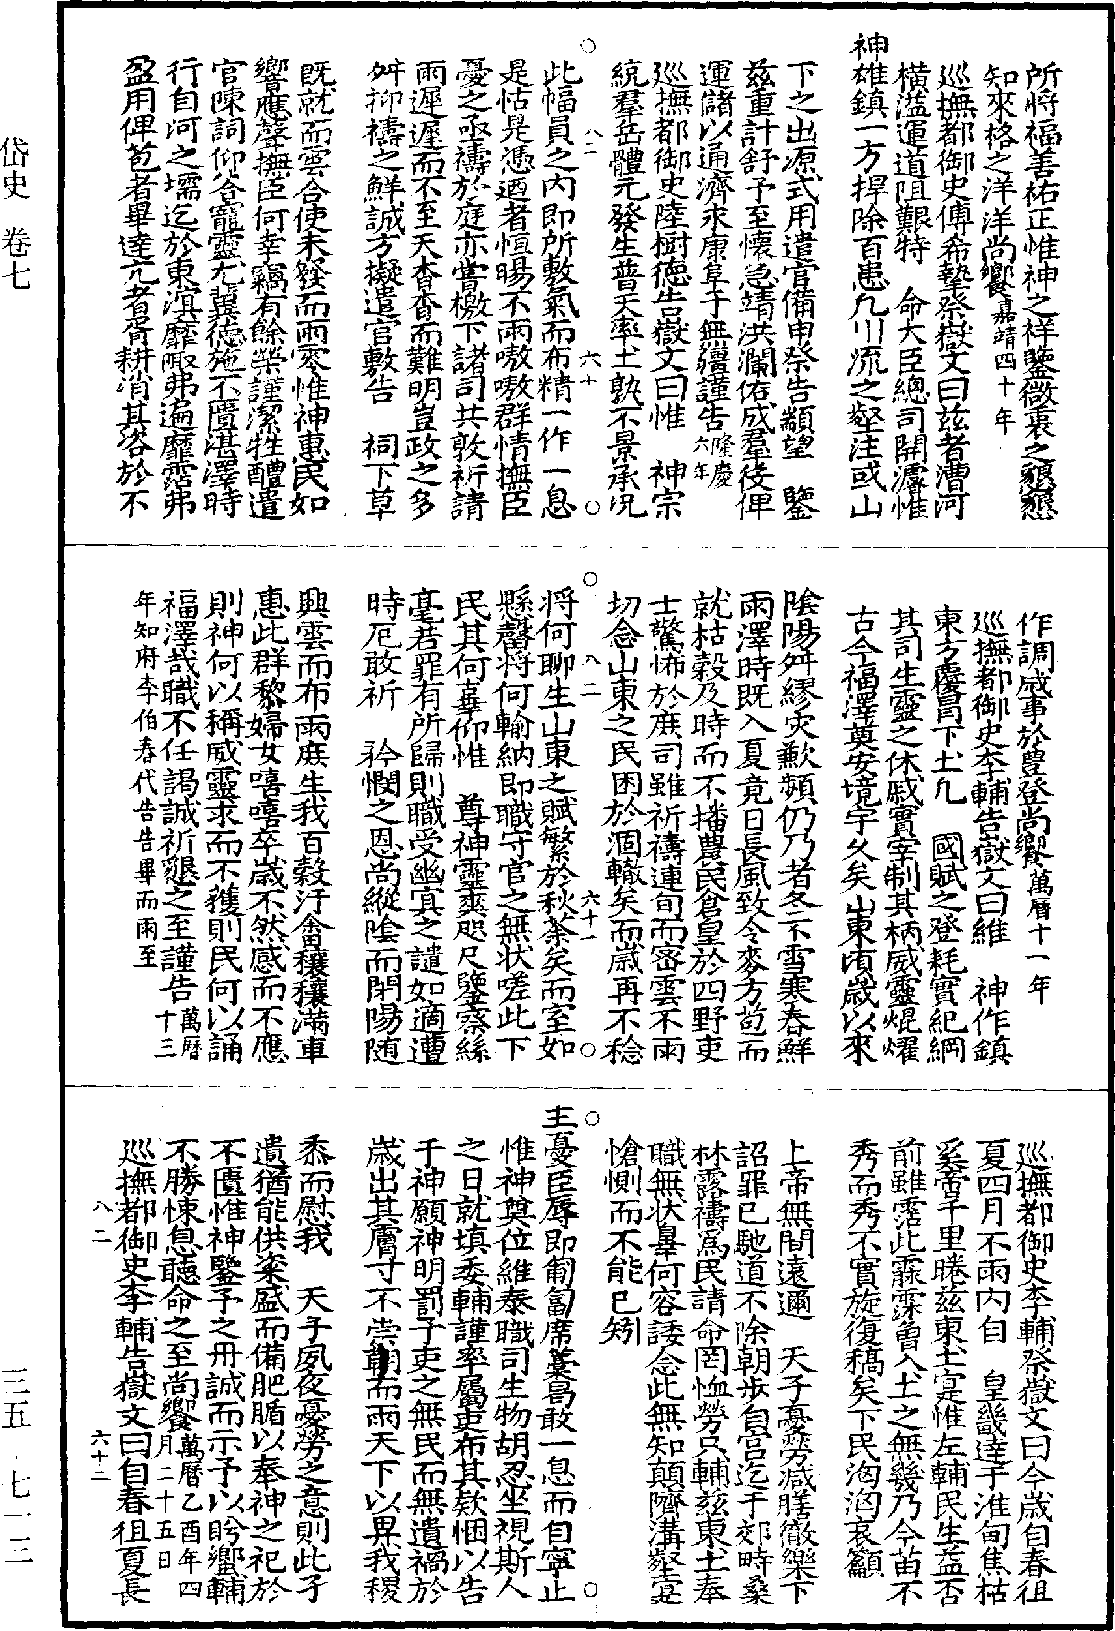 所將福善祐正惟神之祥鑒微衷之懇懇
知來格之洋洋尚饗嘉靖四十年
巡撫都御史傅希摯祭嶽文曰茲者漕河
橫溢運道阻艱特 命大臣總司開濬惟
神雄鎮一方捍除百患凡川流之壑注或山
下之出源式用遣官備申祭告顒望 鑒
茲重計舒予至懷急靖洪瀾佑成羣役俾
運儲以通濟求康阜于無疆謹告隆慶六年
巡撫都御史陸樹德告嶽文曰惟 神宗
統羣岳體元發生普天率土孰不景承况
八二 六十
此幅員之內即所敷氣而布精一作一息
是怙是憑迺者恒暘不雨嗷嗷群情撫臣
憂之亟禱於庭亦嘗檄下諸司共敦祈請
雨遲遲而不至天杳杳而難明豈政之多
舛抑禱之鮮誠方擬遣官敷告 祠下草
既就而雲合使未發而雨零惟神惠民如
響應聲撫臣何幸竊有餘榮謹潔牲醴遣
官陳詞仰荅寵靈尢冀德施不匱湛澤時
行自河之壖迄於東溟靡陬弗遍靡霑弗
盈用俾苞者畢達亢者胥耕消其沴於不
作調咸事於豊登尚饗萬曆十一年
巡撫都御史李輔告嶽文曰維 神作鎮
東方覆冒下土凡 國賦之登耗實紀綱
其司生靈之休戚實宰制其柄威靈焜燿
古今福澤奠安境宇久矣山東頃歲以來
陰陽舛繆灾歉頻仍乃者冬不雪寒春鮮
雨澤時既入夏竟日長風致令麥方苞而
就枯穀及時而不播農民倉皇於四野吏
士驚怖於庶司雖祈禱連旬而密雲不雨
切念山東之民困於涸轍矣而歲再不稔
八二 六十一
將何聊生山東之賦繁於秋荼矣而室如
懸罄將何輸納即職守官之無状嗟此下
民其何辜仰惟 尊神靈爽咫尺鑒察絲
毫若罪有所歸則職受幽冥之譴如適遭
時厄敢祈 矜憫之恩尚縱陰而閉陽随
興雲而布雨庶生我百穀汙畬穰穰滿車
惠此群黎婦女嘻嘻卒歲不然感而不應
則神何以稱威靈求而不獲則民何以誦
福澤哉職不任謁誠祈懇之至謹告萬曆十三
年知府李伯春代告告畢而雨至
巡撫都御史李輔祭嶽文曰今歲自春徂
夏四月不雨內自 皇畿達于淮甸焦枯
奚啻千里睠茲東土寔惟左輔民生益否
前雖霑此霡霂曾入土之無幾乃今苗不
秀而秀不實旋復稿矣下民洶洶哀籲
上帝無間遠邇 天子憂勞减膳徹樂下
詔罪已馳道不除朝步自宮迄于郊畤桑
林露禱為民請命罔恤勞只輔茲東土奉
職無状辠何容諉念此無知顛隮溝壑寔
愴惻而不能已矧
主憂臣辱即匍匐席藁曷敢一息而自寧止
惟神奠位維泰職司生物胡忍坐視斯人
之日就填委輔謹率屬吏布其欵悃以告
于神願神明罰予吏之無民而無遺禍於
歲出其膚寸不崇朝而雨天下以畀我稷
黍而慰我 天子夙夜憂勞之意則此孑
遺猶能供粢盛而備肥腯以奉神之祀於
不匱惟神鑒予之丹誠而示予以肹蠁輔
不勝悚息聽命之至尚饗萬曆乙酉年四月二十五日
八二 六十二
巡撫都御史李輔告嶽文曰自春徂夏長
岱史 卷七
三五・七一三